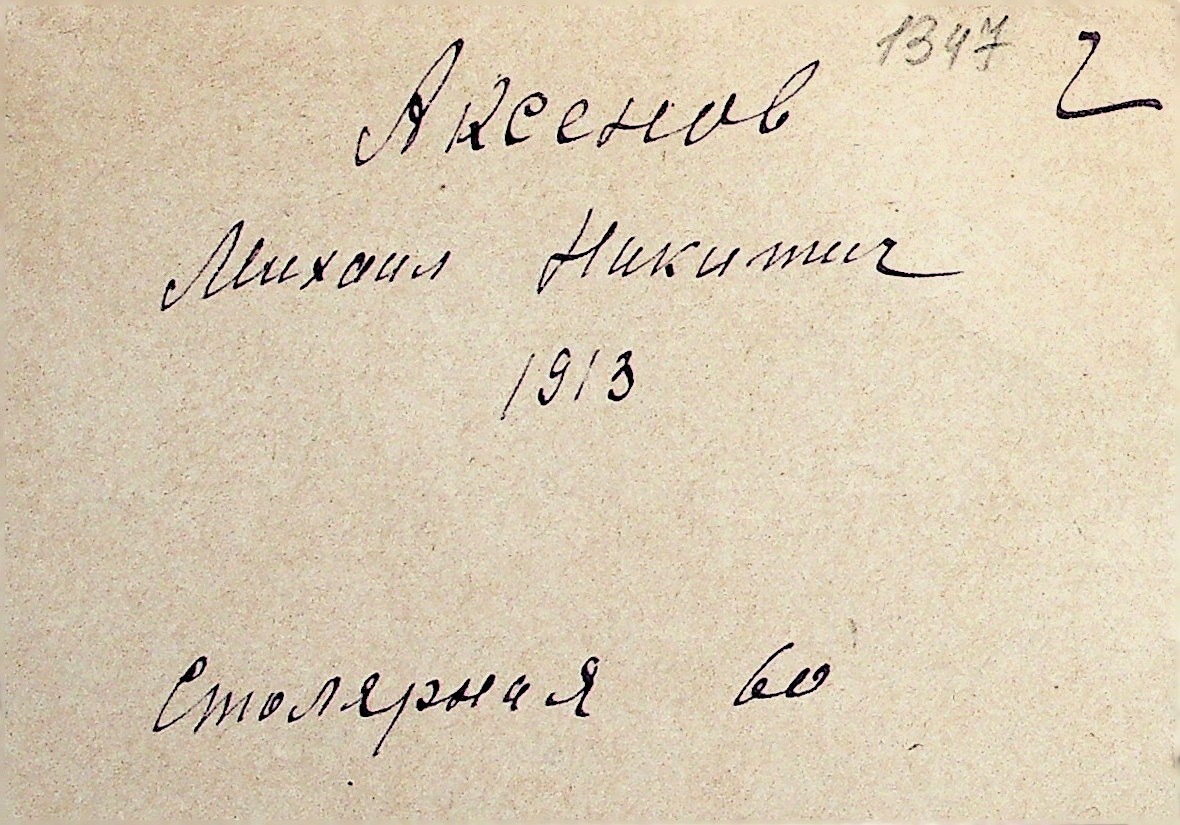 1347 ч
Аксенов
Михаил Никитич
1913
Столярная 60